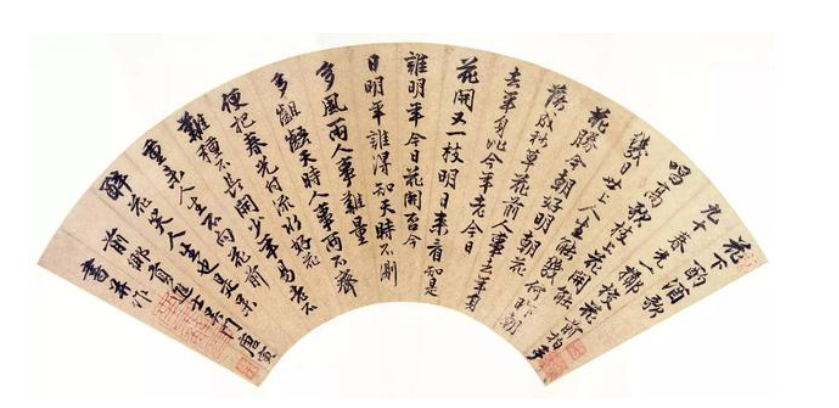 花下酌酒歌
九十春光一擲梭花前拍手
唱高歌枝上花開能
幾日世上人生能幾何昨朝
花勝今朝好明朝花
落成秋草花前人事去年身
去年身比今年老今日
花開又一枝明日来看知是
誰明年今日花開否今
日明年誰得知天時不測
多風雨人事難量
多齟齬天時人事兩不齊
便把春光付流水好花
難種不長開少年易老不
重来人生不向花前
醉花笑人生也是呆
前鄉貢進士吳門唐寅
書并作